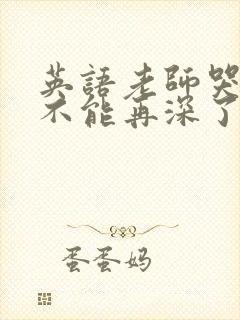 英語老師哭
不能再深了
蛋蛋妈